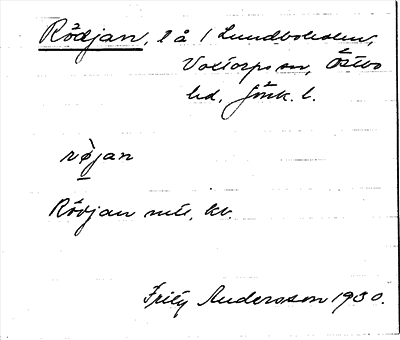 Rödjan, l å / Lundboholm,
Voxtorps sn, Östbo
hd, Jönk. l.
røjan
Rödjan mtl, kv.
Fritz Andersson 1930.